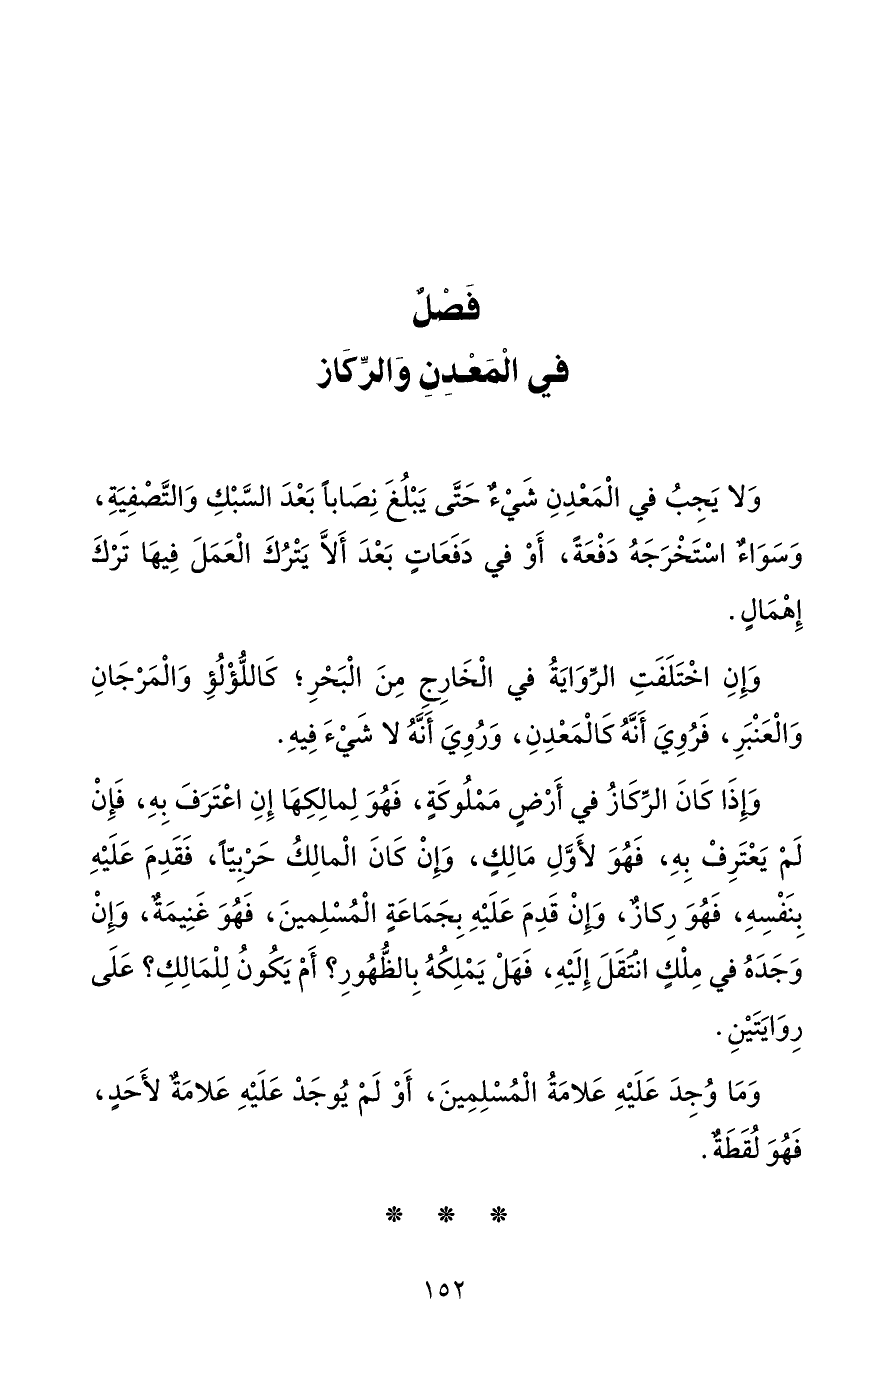 فَصْلٌ
فِي الْمَعْدِنِ وَالرِّكَاز
وَلا يَجِبُ في الْمَعْدِنِ شَيْءٌ حَتَّى يَبْلُغَ نِصَاباً بَعْدَ السَّبْكِ وَالتَّصْفِيَةِ،
وَسَوَاءٌ اسْتَخْرَجَهُ دَفْعَةً، أَوْ في دَفَعَاتٍ بَعْدَ أَلاَّ يَتْرُكَ الْعَمَلَ فِيهَا تَرْكَ
إِهْمَالٍ.
وَإِنِ اخْتَلَفَتِ الرِّوَايَةُ في الْخَارِجِ مِنَ الْبَحْرِ؛ كَاللُّؤْلُؤِ وَالْمَرْجَانِ
وَالْعَنْبَرِ، فَرُوِيَ أَنَّهُ كَالْمَعْدِنِ، وَرُوِيَ أَنَّهُ لا شَيْءَ فِيهِ.
وَإِذَا كَانَ الرِّكَازُ في أَرْضٍ مَمْلُوكَةٍ، فَهُوَ لِمالِكِهَا إِنِ اعْتَرَفَ بِهِ، فَإِنْ
لَمْ يَعْتَرِفْ بِهِ، فَهُوَ لأَوَّلِ مَالِكٍ، وَإِنْ كَانَ الْمالِكُ حَرْبِيّاً، فَقَدِمَ عَلَيْهِ
بِنَفْسِهِ، فَهُوَ رِكازٌ، وَإِنْ قَدِمَ عَلَيْهِ بِجَمَاعَةٍ الْمُسْلِمينَ، فَهُوَ غَنِيمَةٌ، وَإِنْ
وَجَدَهُ في مِلْكٍ انْتُقَلَ إِلَيْهِ، فَهَلْ يَمْلِكُهُ بِالظُّهُورِ؟ أَمْ يَكُونُ لِلْمَالِكِ؟ عَلَى
رِوايَتَيْنِ.
وَمَا وُجِدَ عَلَيْهِ عَلامَةُ الْمُسْلِمِينَ، أَوْ لَمْ يُوجَدْ عَلَيْهِ عَلامَةٌ لأَحَدٍ،
فَهُوَ لُقَطَةٌ.
* * *
١٥٢